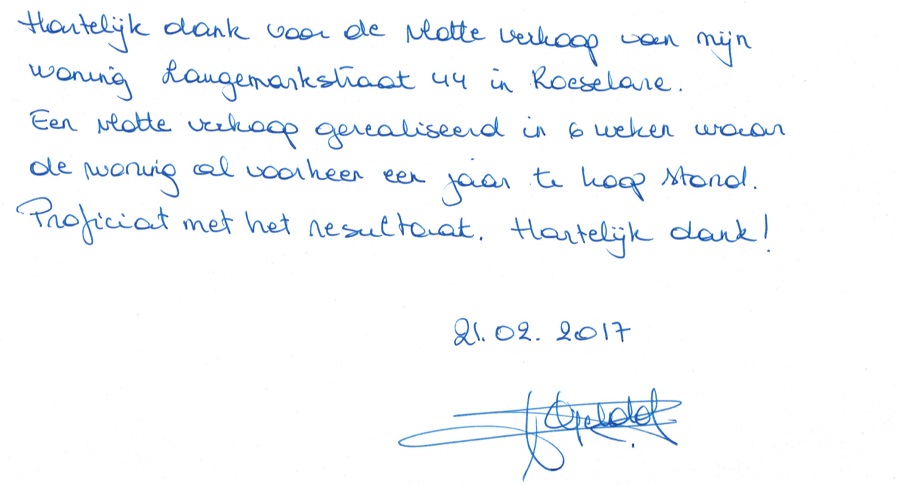 Hartelijk dank voor de vlotte verkoop van mijn
woning Langemarkstraat 44 in Roeselare.
Een vlotte verkoop gerealiseerd in 6 weken waar
de woning al voorheen een jaar te koop stond.
Proficiat met het resultaat. Hartelijk dank!
21.02.2017